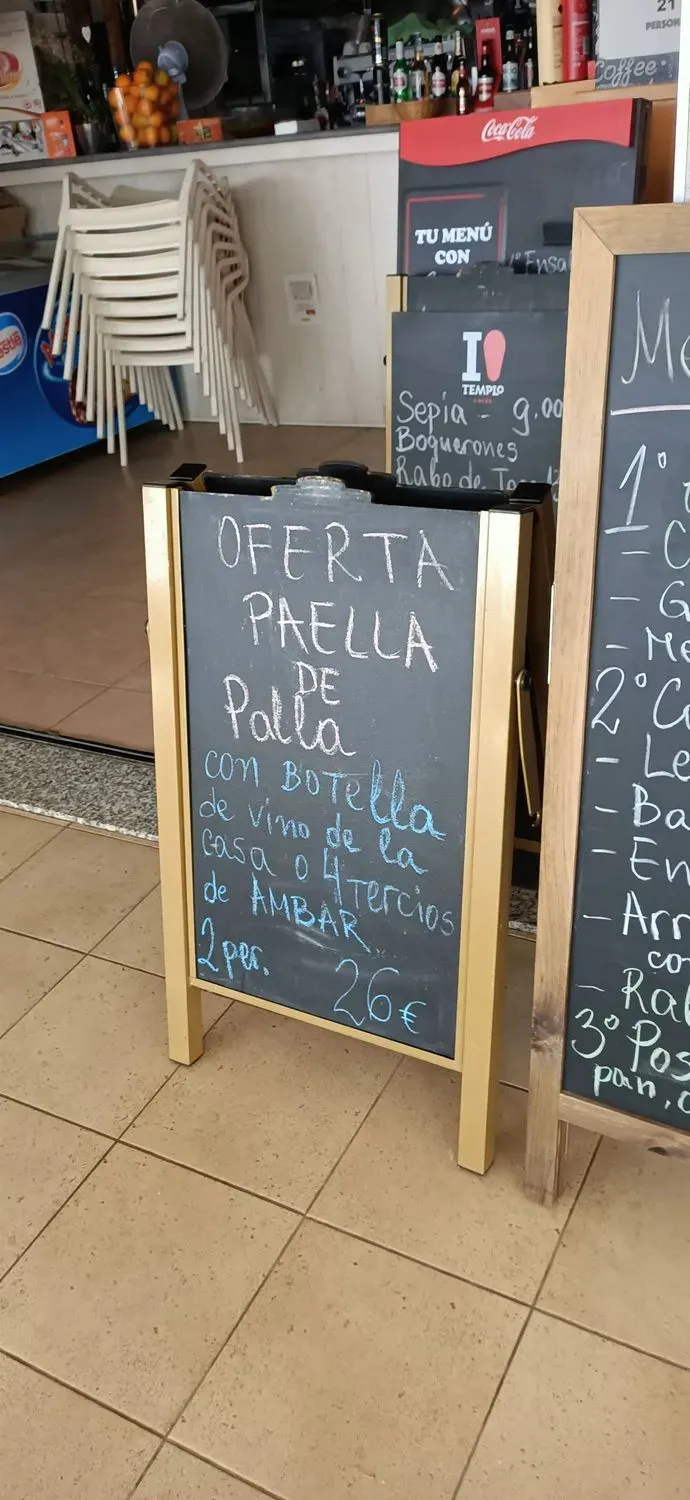 21
PERSON
Coffee
Coca-Cola
TU MENÚ
CON
1º Ensa
Nestlé
I
TEMPLO
Sepia - 9,00
Boquerones
Rabo de To
OFERTA
PAELLA
DE
Palla
con BOTella
de vino de la
casa o 4 TERCIOS
de AMBAR
2 per. 26€
Me
1º
- C
- G
- Me
2º Ca
- Le
- Ba
- En
- Arr
co
- Rab
3º Pos
pan, c